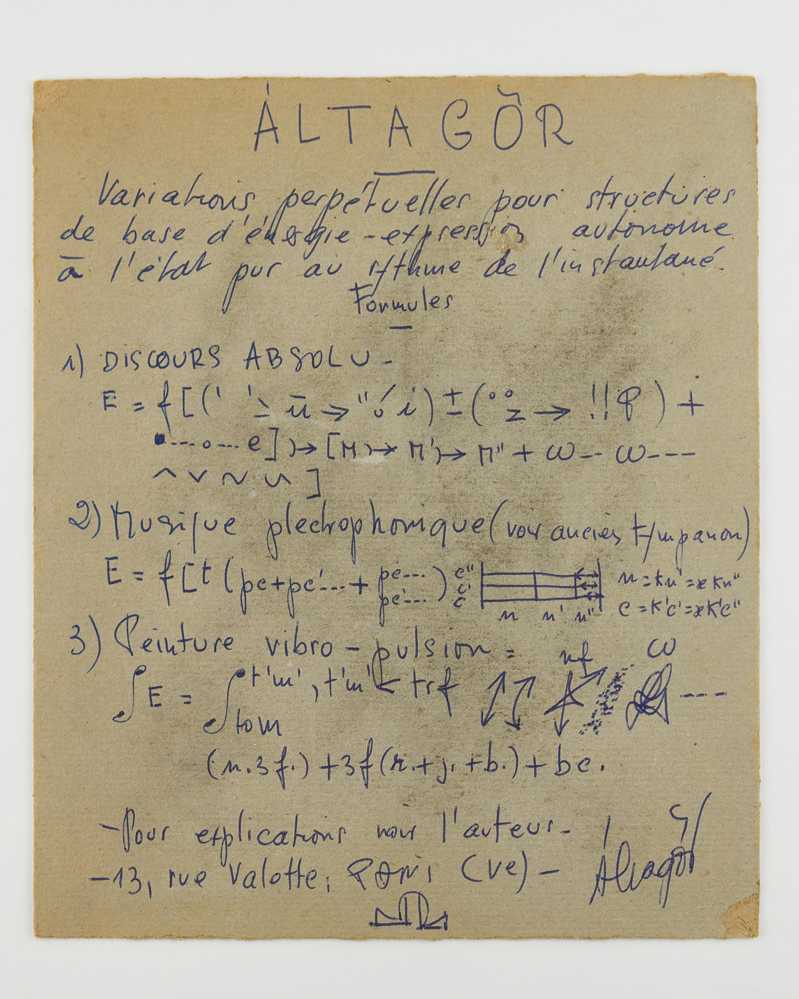 ÁLTAGŎR
Variations perpétuelles pour structures
de base d'énergie-expression autonome
à l'état pur au rythme de l'instantané.
Formules
1) DISCOURS ABSOLU -
E = f[( ' '– ū → " ✓ i) ± (°° z → !!
) +
....o...e] → [M → M' → M" + ω-- ω---
^ ˅ ~ ]
2) Musique plectrophonique (voir ancien tympanon)
E = f[t (pc+pc'...+ pc.... pc'....) c" c' c n = kn' = xkn"
n n' n" c = k'c' = xk'c"
3) Peinture vibro-pulsion = nf ω
∫E = ∫ t'm', t'm' < trf ---
tom
(n.3f.) + 3f(r.+j.+b.) + bc.
-Pour explications voir l'auteur-
-13, rue Valette, PARIS (Ve) - Áltagŏr